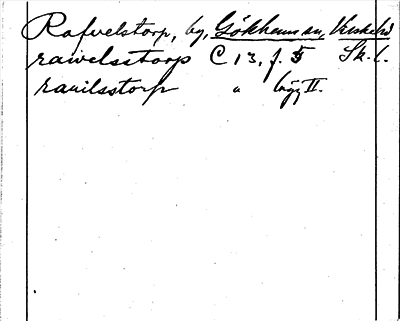 Rafvelstorp, by, Gökhems sn, Vilske hd
rawelsstorp C 13, f. 5 Sk. l.
rauilsstorp " byg II.